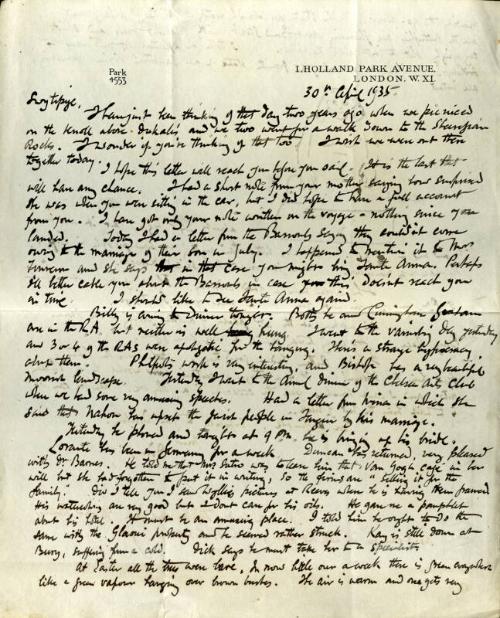 Park
4553
1, HOLLAND PARK AVENUE,
LONDON. W. XI.
30th April 1935
I have just been thinking of that day two years ago when we picnicced
on the knoll above and we two went for a walk down to the
Rocks. I wonder if you're thinking of that too. I wish we were out there
together today.
I hope this letter will reach you before you sail. It is the last that
will have any chance. I had a short note from your mother saying how surprised
she was when you were sitting in the car, but I did hope to have a full account
from you. I have got only your note written on the voyage - nothing since you
landed. Today I had a letter from the saying they couldn't come
owing to the marriage of their son in July. I happened to mention it to Mrs
and she says in that case you might bring Anna. Perhaps
I'll better cable you about the in case this doesn't reach you
in time. I should like to see Anna again.
Billy is coming to dinner tonight. Both he and Cunningham Graham
are in the R.A. but neither is well hung. I went to the varnishing day yesterday
and 3 or 4 of the RAs were apologetic for the hanging. There's a strange hypocrisy
about them. Philpot's work is very interesting and Bishop has a very beautiful
Moorish landscape. Yesterday I went to the Annual dinner of the Chelsea Arts Club
when we had some very amusing speeches. Had a letter from in which she
said that has upset the people in by his marriage.
Yesterday he phoned and tonight at 9 pm. he is bringing up his bride.
has been in Germany for a week. Duncan has returned, very pleased
with Dr. Barnes. He told me that Mrs way to leave him that Van Gogh café in her
will but she had forgotten to put it in writing, so the are "selling it for the
family". Did I tell you I saw pictures at Reeves when he is having them framed
His watercolours are very good but I dont care for his oils. He gave me a pamphlet
about his hotel. It must be an amusing place. I told him he ought to do the
same with the property and he seemed rather struck. Kay is still down at
Bury, suffering from a cold. Dick says he must take her to a specialist.
At Easter all the trees were bare, & now little over a week there is green everywhere
like a green vapour hanging over brown bushes. The air is warm and one gets very